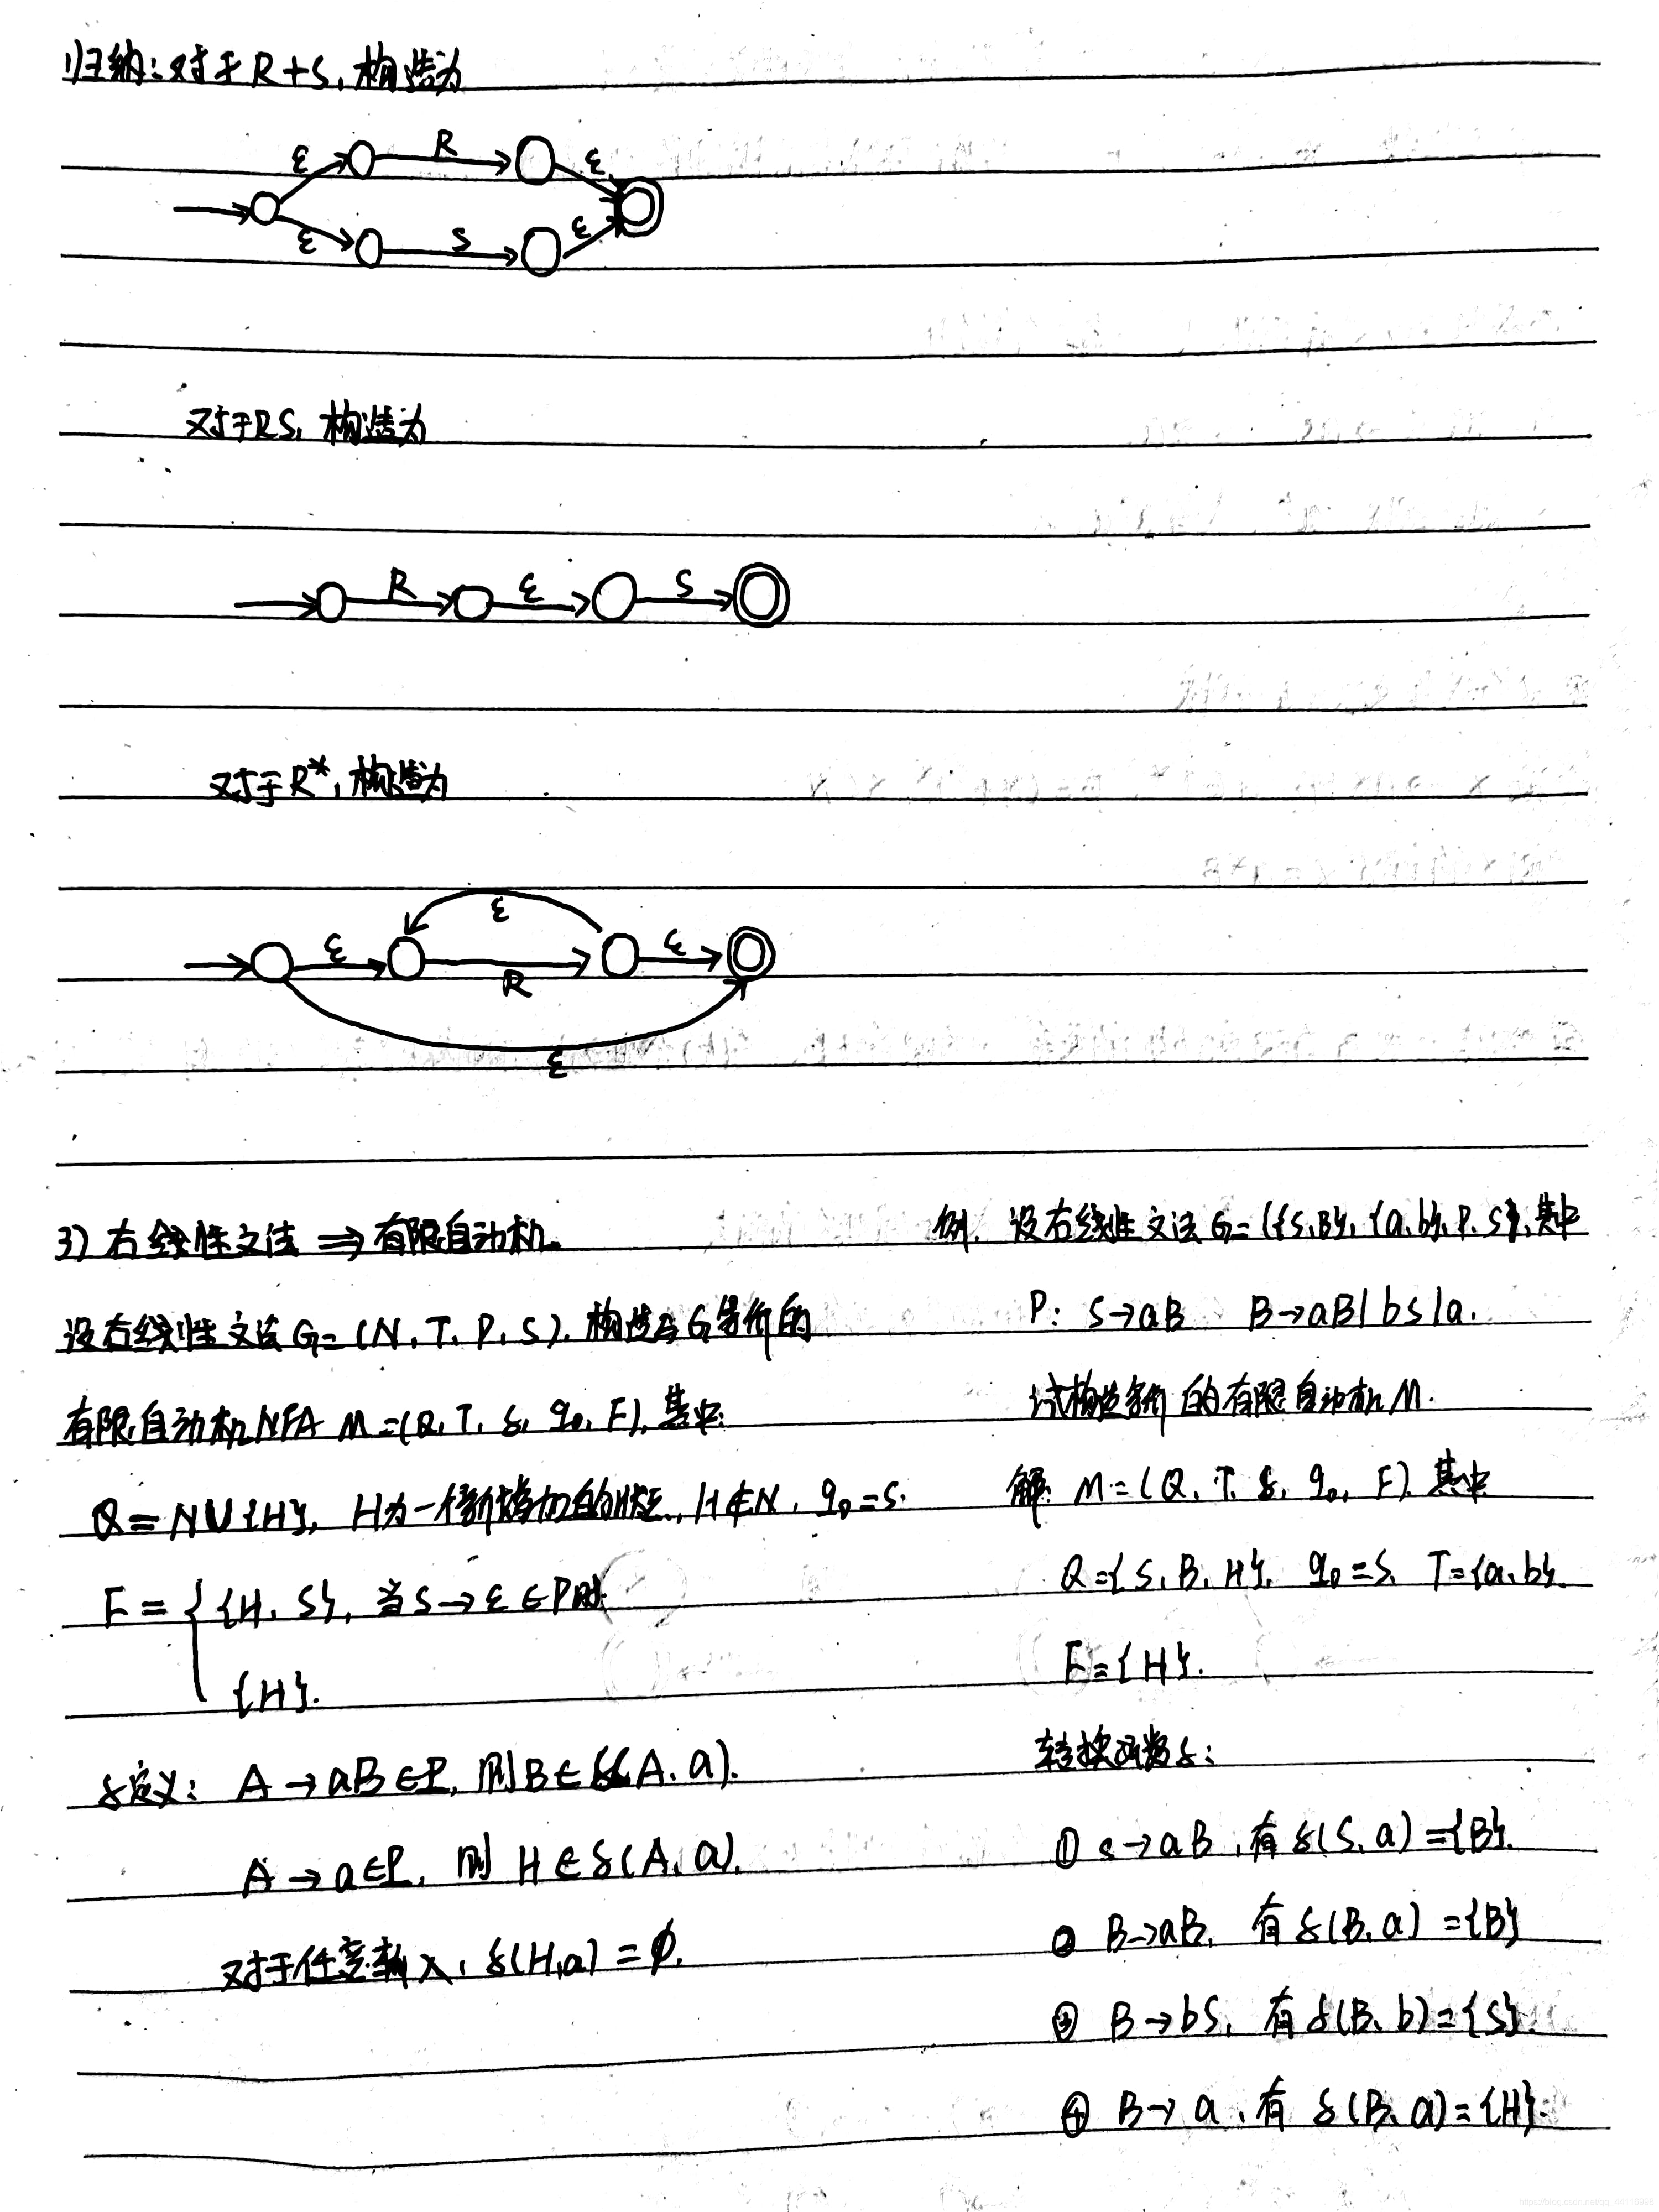 归纳:对于R+S,构造为
ε R ε
ε S ε
对于RS,构造为
R ε S
对于R*,构造为
ε
ε R ε
ε
3) 右线性文法 ⇒ 有限自动机.
设右线性文法G=(N,T,P,S),构造与G等价的
有限自动机NFA M=(Q,T,δ,q₀,F),其中:
Q=N∪{H}, H为一个新增加的状态,H∉N,q₀=S.
F={ {H,S}, 当S→ε∈P时
{H}.
δ定义: A→aB∈P,则B∈δ(A,a).
A→a∈P,则H∈δ(A,a).
对于任意输入,δ(H,a)=∅.
例. 设右线性文法G=({S,B},{a,b},P,S),其中
P: S→aB B→aB|bS|a.
试构造等价的有限自动机M.
解: M=(Q,T,δ,q₀,F) 其中
Q={S,B,H}, q₀=S, T={a,b}.
F={H}.
转换函数δ:
① S→aB,有δ(S,a)={B}.
② B→aB,有δ(B,a)={B}
③ B→bS,有δ(B,b)={S}.
④ B→a,有δ(B,a)={H}.